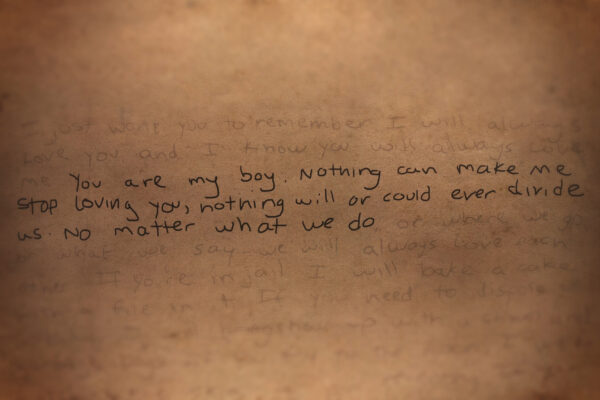 I just want you to remember I will always
love you and I know you will always love
me You are my boy. Nothing can make me
stop loving you, nothing will or could ever divide
us. No matter what we do or where we go
or what we say we will always love each
other If you're in jail I will bake a cake
with a file in it, If you need to
show up with a